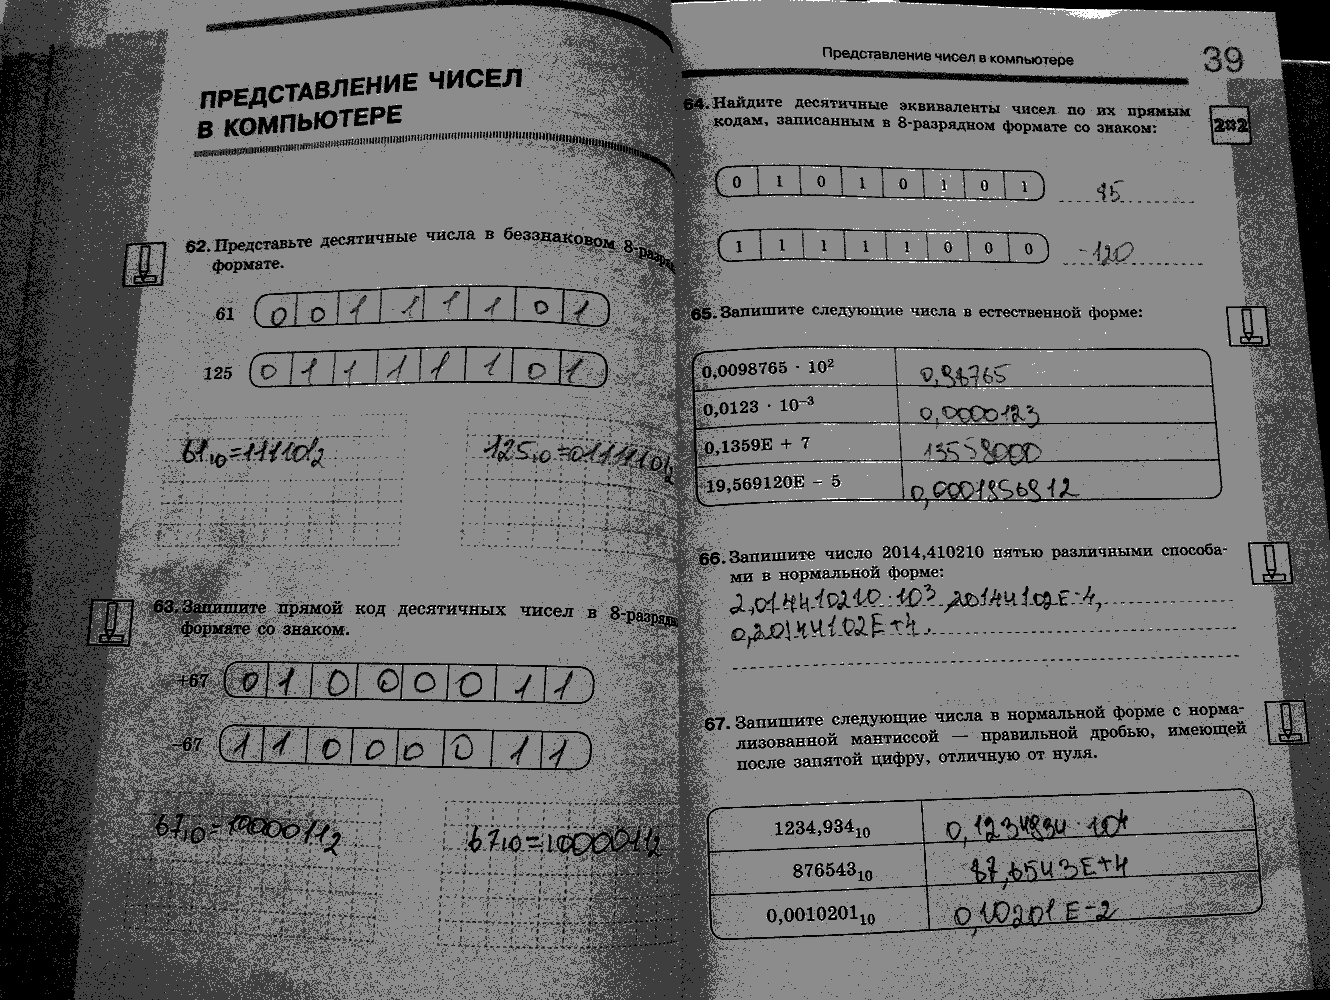 ПРЕДСТАВЛЕНИЕ ЧИСЕЛ
В КОМПЬЮТЕРЕ
62. Представьте десятичные числа в беззнаковом 8-разряд
формате.
61 0 0 1 1 1 1 0 1
125 0 1 1 1 1 1 0 1
61₁₀=111101₂ 125₁₀=01111101₂
63. Запишите прямой код десятичных чисел в 8-разрядн
формате со знаком.
+67 0 1 0 0 0 0 1 1
−67 1 1 0 0 0 0 1 1
67₁₀=1000011₂ 67₁₀=1000011₂
Представление чисел в компьютере 39
64. Найдите десятичные эквиваленты чисел по их прямым
кодам, записанным в 8-разрядном формате со знаком:
0 1 0 1 0 1 0 1 85
1 1 1 1 1 0 0 0 -120
65. Запишите следующие числа в естественной форме:
0,0098765 · 10² 0,98765
0,0123 · 10⁻³ 0,0000123
0,1359E + 7 1359000
19,569120E − 5 0,0001956912
66. Запишите число 2014,410210 пятью различными способа-
ми в нормальной форме:
2,014410210·10³, 20144102E-4,
0,20144102E+4.
67. Запишите следующие числа в нормальной форме с норма-
лизованной мантиссой — правильной дробью, имеющей
после запятой цифру, отличную от нуля.
1234,934₁₀ 0,1234934·10⁴
876543₁₀ 87,6543E+4
0,0010201₁₀ 0,10201E-2